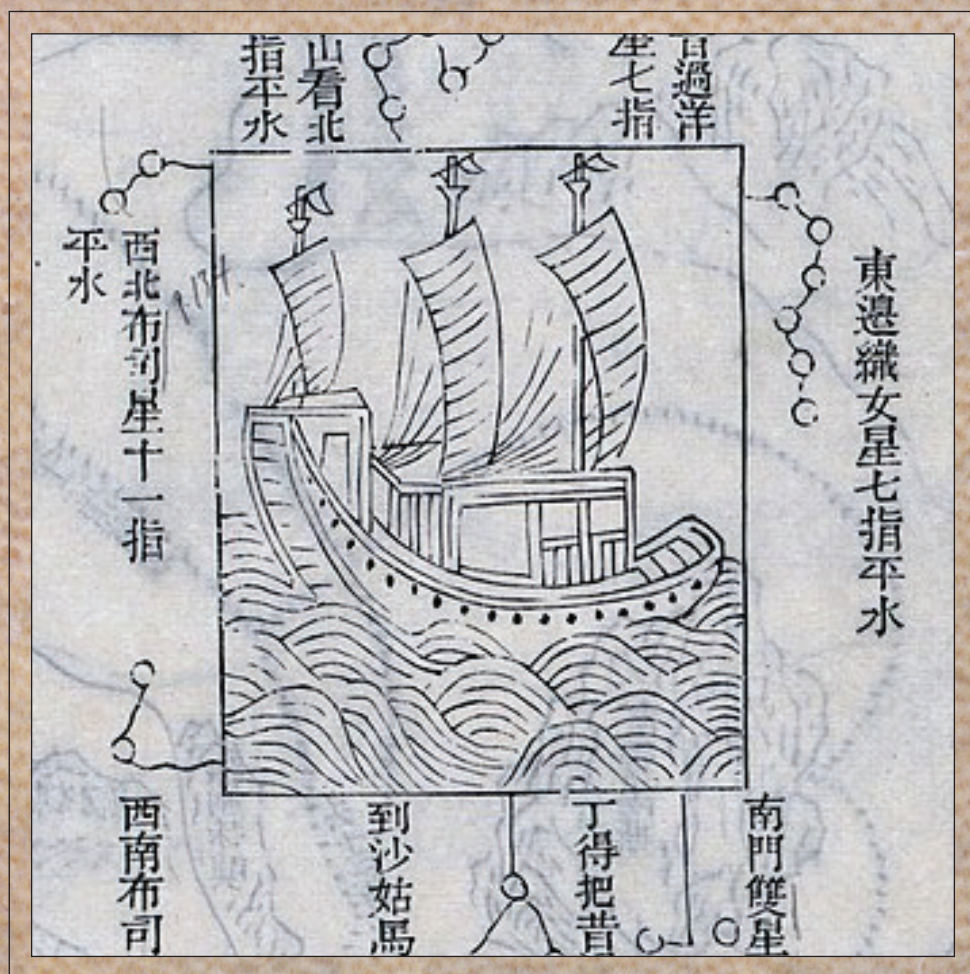 過洋
星七指
山看北
指平水
東邊織女星七指平水
西北布司星十一指
平水
南門雙星
丁得把昔
到沙姑馬
西南布司